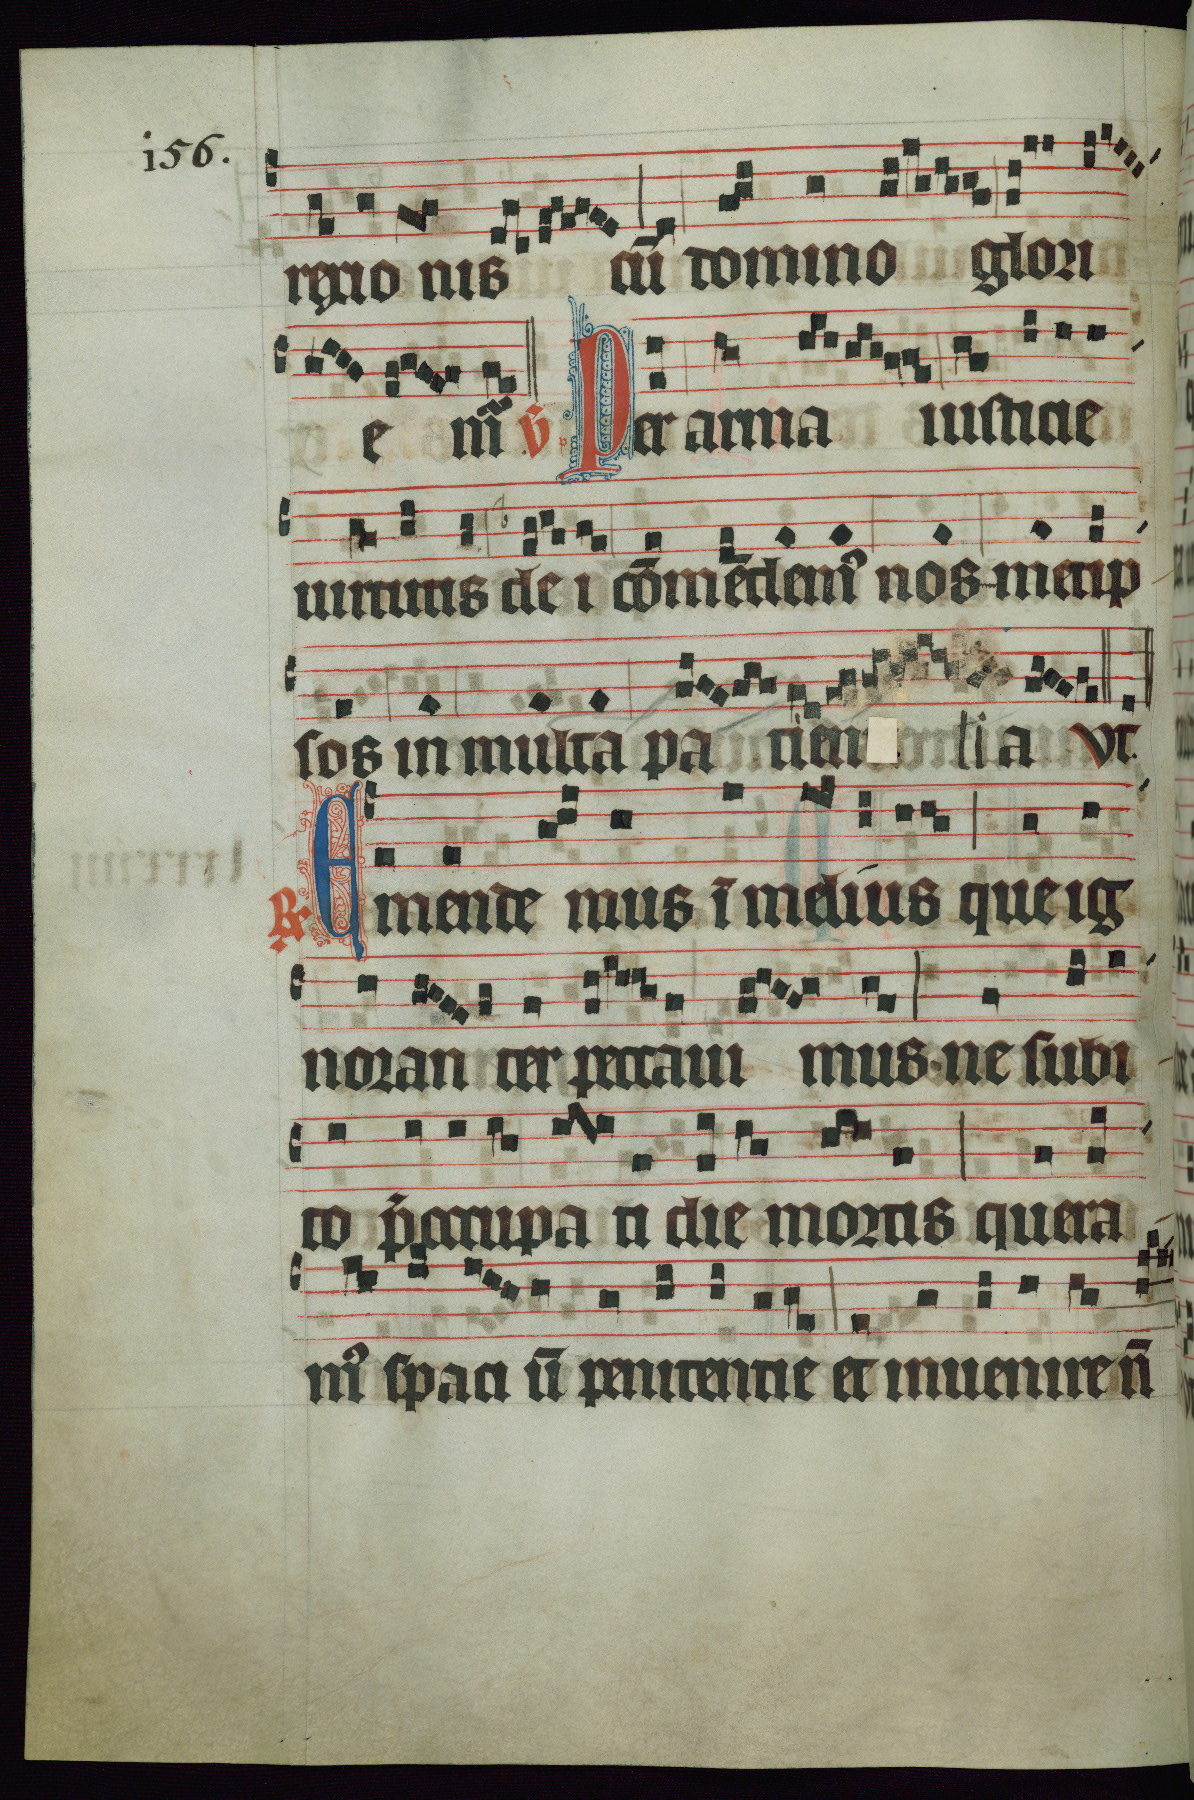 i56.
rexio nis cū domino glori
e m̄ v̄ Per arma iusticie
uirtutis de i cōmēdem᾿ nos metip
sos in multa pa tien ti a vt
R̸ Emende mus ī melius que ig
noran ter peccaui mus ne subi
to p̄occupa ti die mortis quera
m᾿ spaci ū penitentie et inuenire n̄